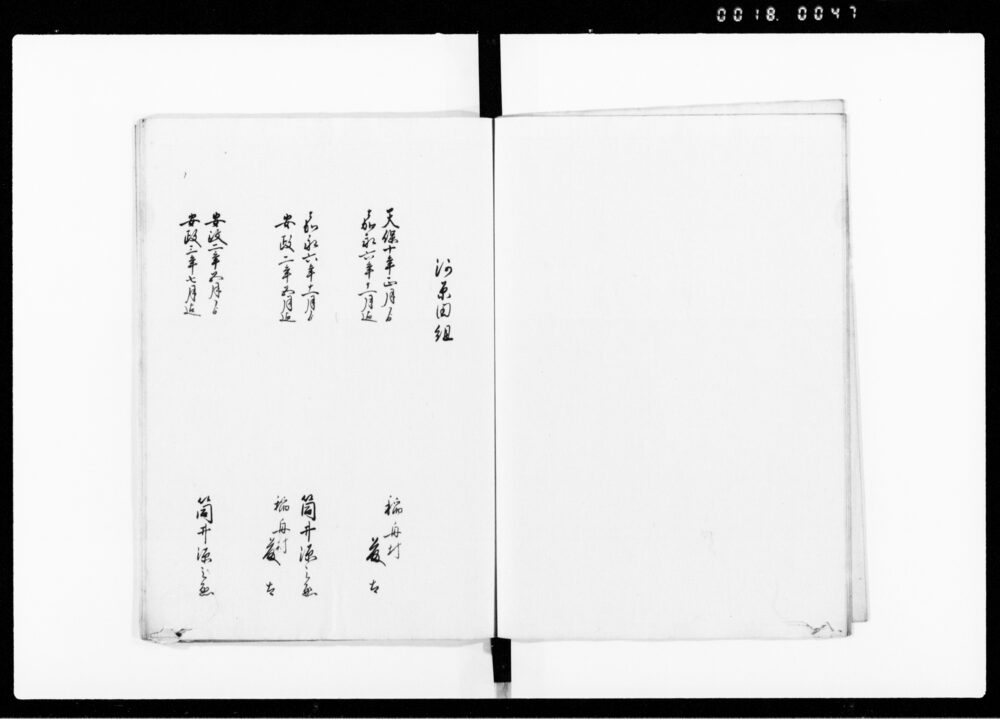 0018. 0047
河原田組
天保十年正月ゟ
嘉永六年十一月迄
稲舟村
嘉永六年十一月ゟ
安政二年五月迄
筒井源之丞
稲舟村
安政二年五月ゟ
安政三年七月迄
筒井源之丞